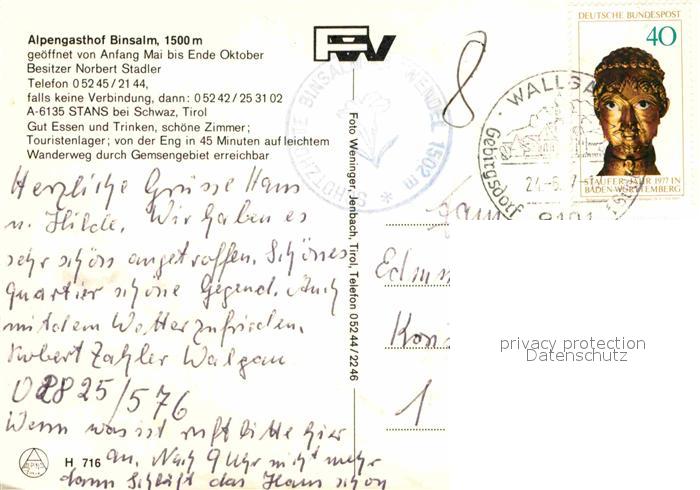 Alpengasthof Binsalm, 1500 m
geöffnet von Anfang Mai bis Ende Oktober
Besitzer Norbert Stadler
Telefon 0 52 45 / 21 44,
falls keine Verbindung, dann: 0 52 42 / 25 31 02
A-6135 STANS bei Schwaz, Tirol
Gut Essen und Trinken, schöne Zimmer;
Touristenlager; von der Eng in 45 Minuten auf leichtem
Wanderweg durch Gemsengebiet erreichbar
Herzliche Grüsse Hans
u. Hilde. Wir haben es
sehr schön angetroffen. Schönes
Quartier schöne Gegend. Auch
mit dem Wetter zufrieden.
Norbert Zahler Walgau
08825/576
Wenn was ist ruft bitte hier
an. Nach 9 Uhr nicht mehr
dann schläft das Haus schon
H 716
Foto Weninger, Jenbach, Tirol, Telefon 0 52 44 / 22 46
8
SCHUTZHÜTTE BINSALM KARWENDEL 1502 m
DEUTSCHE BUNDESPOST
40
STAUFER-JAHR 1977 IN
BADEN-WÜRTTEMBERG
WALLGA
Gebirgsdorf
24.-6.
Fam
Edm
Köni
1
privacy protection
Datenschutz